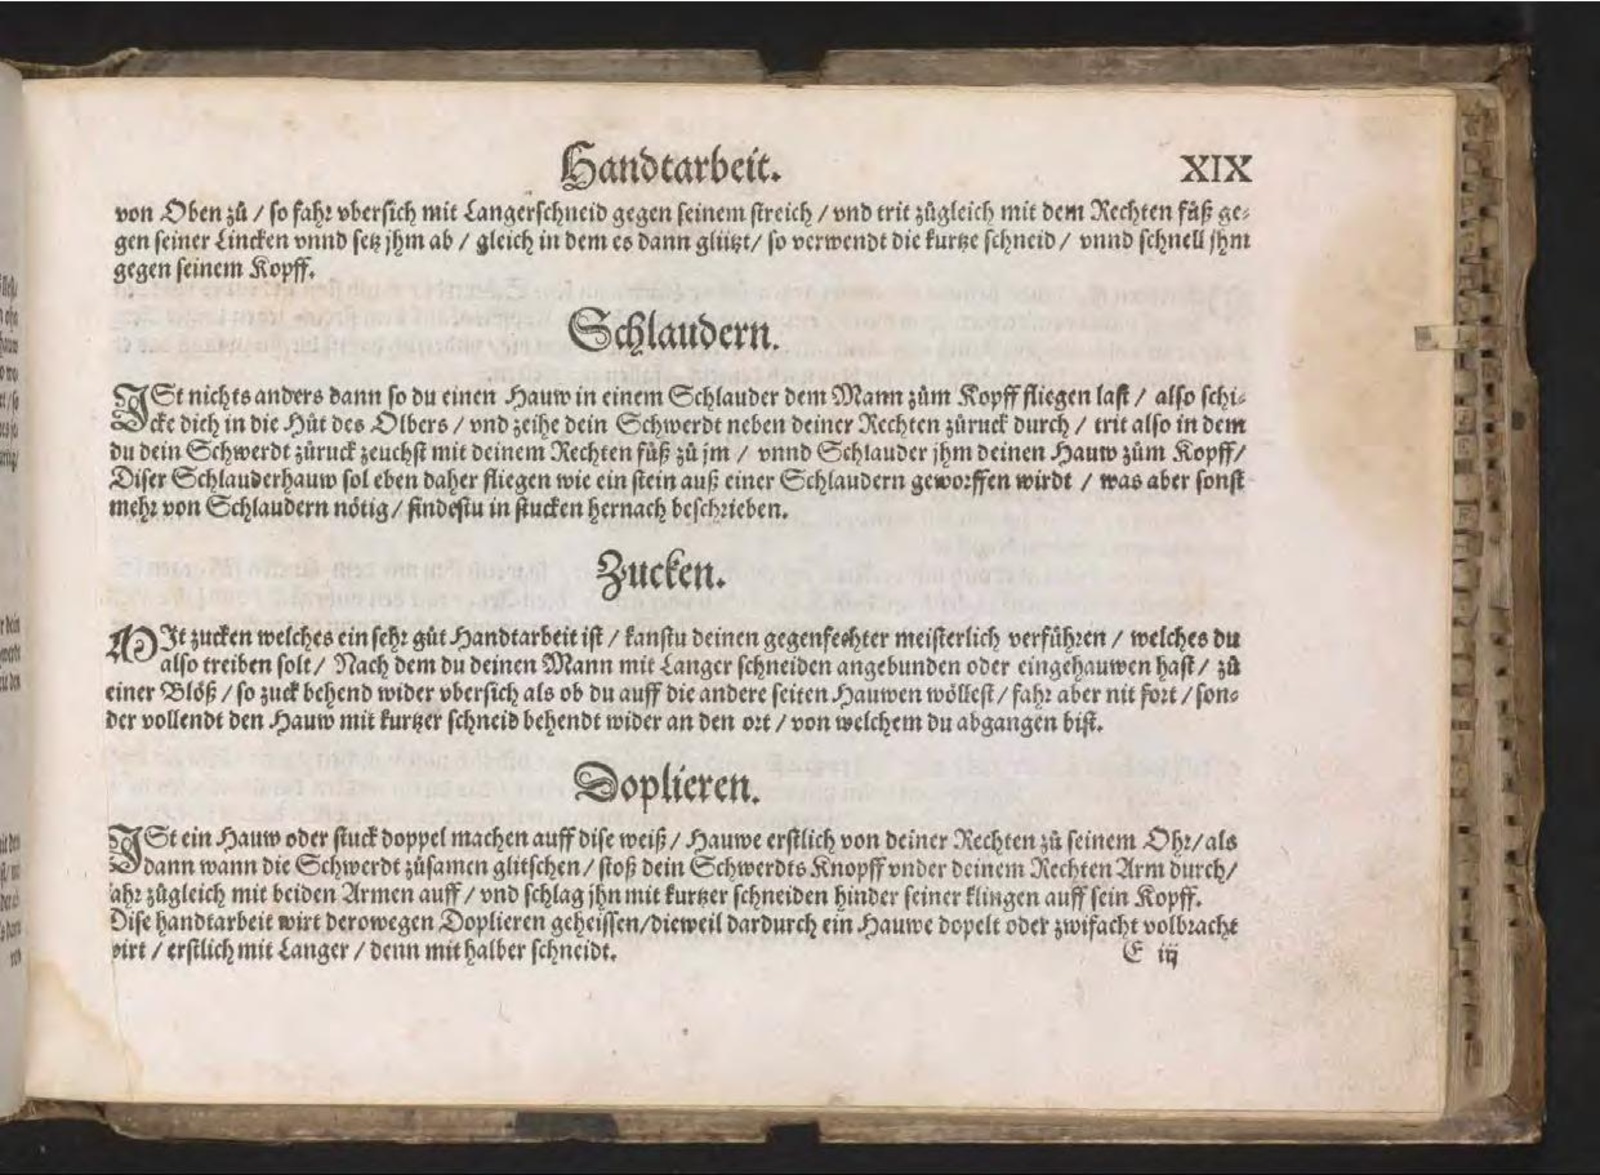 Handtarbeit. XIX
von Oben zů / so fahr vbersich mit Langerschneid gegen seinem streich / vnd trit zůgleich mit dem Rechten fůß ge⸗
gen seiner Lincken vnnd setz jhm ab / gleich in dem es dann glützt / so verwendt die kurtze schneid / vnnd schnell jhm
gegen seinem Kopff.
Schlaudern.
ISt nichts anders dann so du einen Hauw in einem Schlauder dem Mann zům Kopff fliegen last / also schi⸗
cke dich in die Hůt des Olbers / vnd zeihe dein Schwerdt neben deiner Rechten zůruck durch / trit also in dem
du dein Schwerdt zůruck zeuchst mit deinem Rechten fůß zů jm / vnnd Schlauder jhm deinen Hauw zům Kopff /
Diser Schlauderhauw sol eben daher fliegen wie ein stein auß einer Schlaudern geworffen wirdt / was aber sonst
mehr von Schlaudern nötig / findestu in stucken hernach beschrieben.
Zucken.
MIt zucken welches ein sehr gůt Handtarbeit ist / kanstu deinen gegenfechter meisterlich verführen / welches du
also treiben solt / Nach dem du deinen Mann mit Langer schneiden angebunden oder eingehauwen hast / zů
einer Blöß / so zuck behend wider vbersich als ob du auff die andere seiten Hauwen wöllest / fahr aber nit fort / son⸗
der vollendt den Hauw mit kurtzer schneid behendt wider an den ort / von welchem du abgangen bist.
Doplieren.
ISt ein Hauw oder stuck doppel machen auff dise weiß / Hauwe erstlich von deiner Rechten zů seinem Ohr / als
dann wann die Schwerdt zůsamen glitschen / stoß dein Schwerdts Knopff vnder deinem Rechten Arm durch /
ahr zůgleich mit beiden Armen auff / vnd schlag jhn mit kurtzer schneiden hinder seiner klingen auff sein Kopff.
Dise handtarbeit wirt derowegen Doplieren geheissen / dieweil dardurch ein Hauwe dopelt oder zwifacht volbracht
wirt / erstlich mit Langer / denn mit halber schneidt.
E iij